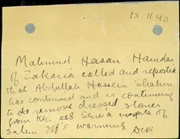 13.11.40
Mahmud Hasan Hamdan
of Zakaria called and reported
that Abdullah Hussein Shahin
has continued and is continuing
to do remove dressed stones
from Kh. in spite of
Salem warning